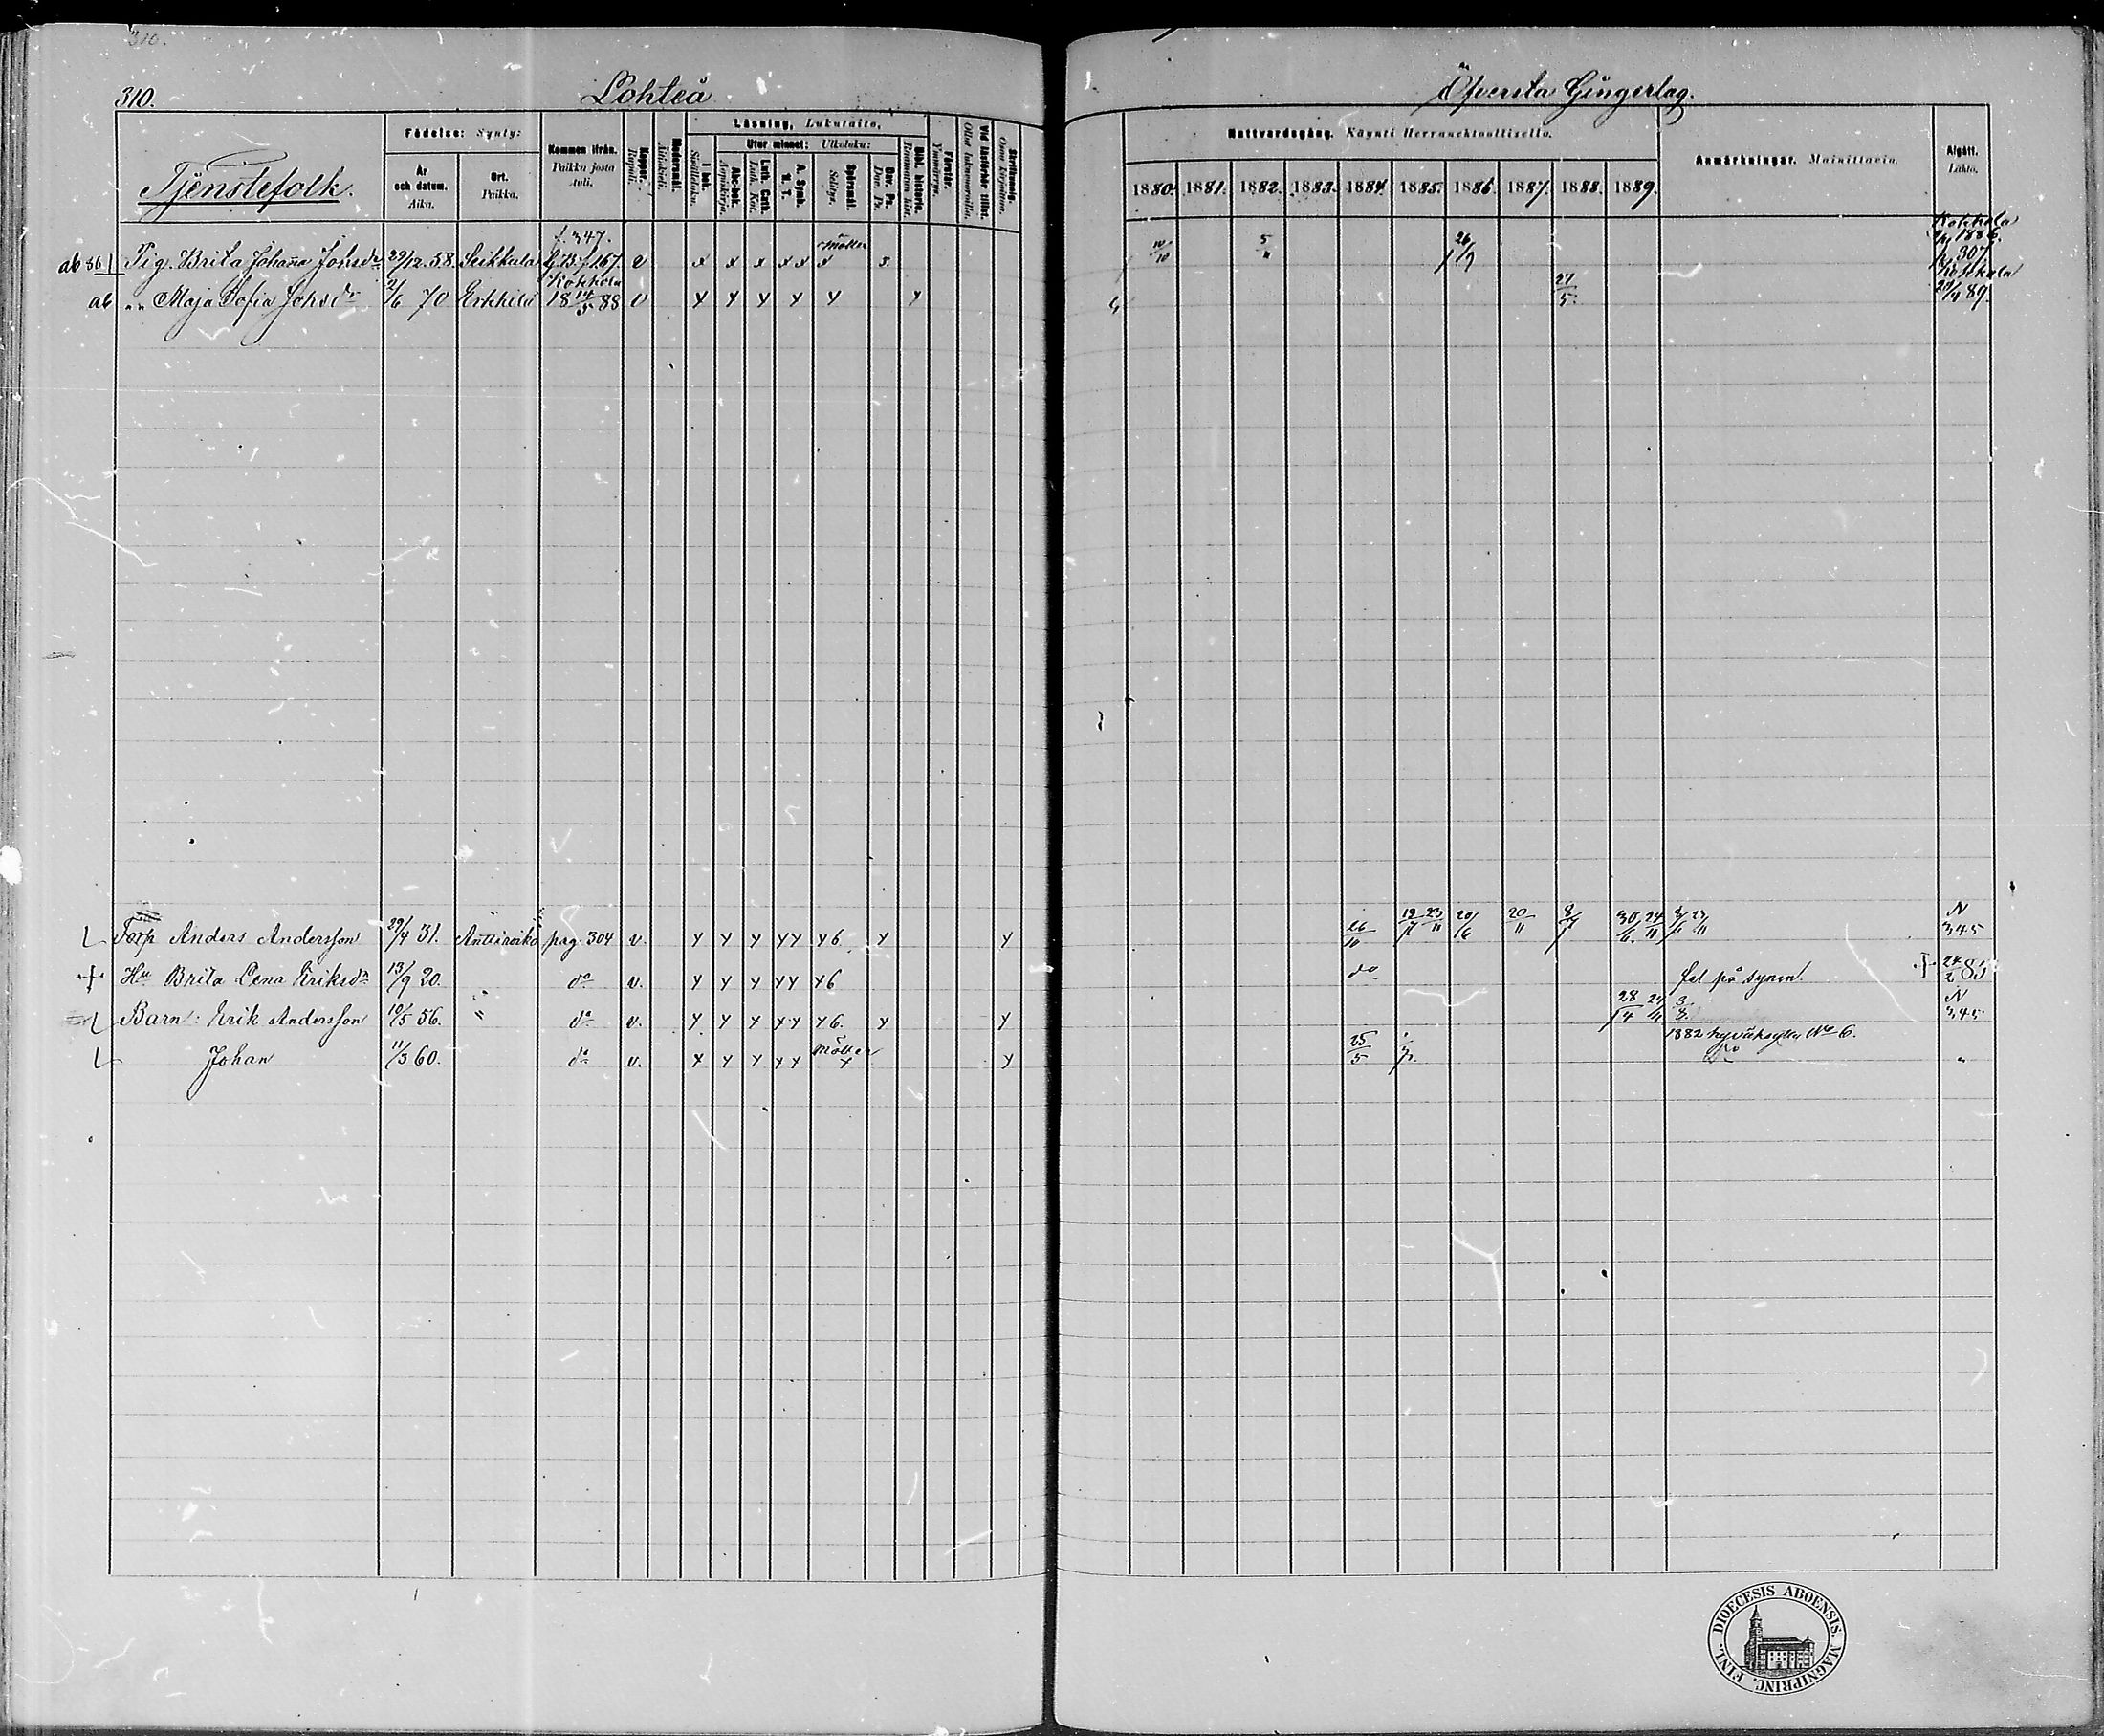 310.
310. Lohteå
Öfversta Gingerlag.
Tjenstefolk.
Födelse: Synty:
År och datum. Aika.
Ort. Paikka.
Kommen ifrån. Paikka josta tuli.
Koppor. Rupuli.
Modersmål. Äitinkieli.
Läsning, Lukutaito,
I bok. Sisältluku.
Utur minnet: Ulkoluku:
Abc-bok. Aapiskirja.
Luth. Cath. Luth. Kat.
A. Symb. H. T.
Spörsmål. Selitys.
Dav. Ps. Dav. Ps.
Bibl. historie. Raamatun hist.
Förstår. Ymmärrys.
Vid läsförhör tillst. Ollut lukuvuorolla.
Skrifkunnig. Osaa kirjoittaa.
Nattvardsgång. Käynti Herranehtoollisella.
1880. 1881. 1882. 1883. 1884. 1885. 1886. 1887. 1888. 1889.
Anmärkningar. Mainittavia.
Afgått. Lähtö.
ab 86 Pig. Brita Johaña Johsdr 29/12. 58 Seikkula f. 347. f. 167. v x x x x x möller x s. 10/10 5/11 26/9 Kokkola 1886. 307
ab „ „ Maja Sofia Johsdr 2/6 70 Erkkilä Kokkola 18 14/5 88 v y y y y y y 27/5. Kokkola 20/4 89.
Torp Anders Andersson 29/4 31. Anttiroiko pag. 304 v. y y y y y y 6 y y 26/10 12/4 23/11 20/6 20/11 8/4 30/6. 24/11 23/11 N 345
+ Hu Brita Lena Eriksdr 13/9 20. do v. y y y y y y 6 do fel på synen! + 24/2 85
Barn: Erik Andersson 10/5 56. „ do v. y y y y y y 6. y y 28/4 24/11 N 345
Johan 11/3 60. do v. y y y y y möller y y 25/5 1882 No 6. „
FINL. DIOECESIS ABOENSIS. MAGNIPRINC.